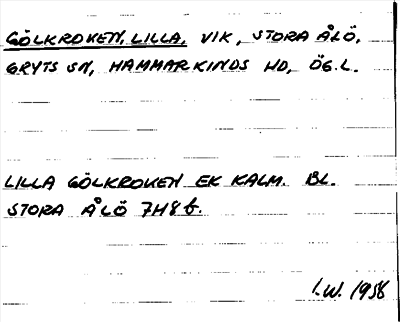 GÖLKROKEN, LILLA, VIK, STORA ÅLÖ,
GRYTS SN, HAMMARKINDS HD, ÖG.L.
LILLA GÖLKROKEN EK KALM. BL.
STORA ÅLÖ 7H8f.
I.W. 1958